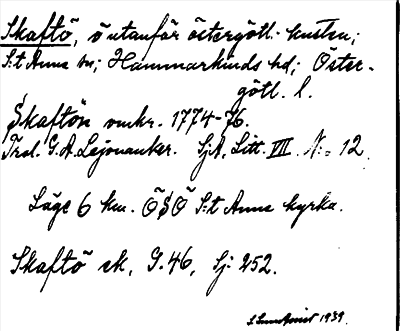 Skaftö, ö utanför östergötl. kusten;
S:t Anna sn; Hammarkinds hd; Öster-
götl. l.
Skaftön omkr. 1774-76.
Trol. G. A. Lejonanker. SjA. Litt. VII N:o 12.
Läge 6 km. ÖSÖ S:t Anna kyrka.
Skaftö ek, G. 46, Sj: 252.
1939.